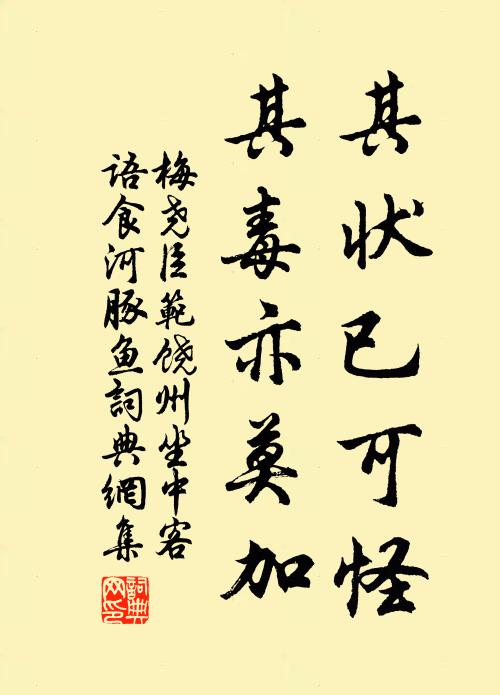 其状已可怪
其毒亦莫加
梅尧臣範饶州坐中客
语食河豚鱼詞典網集
詞典网印